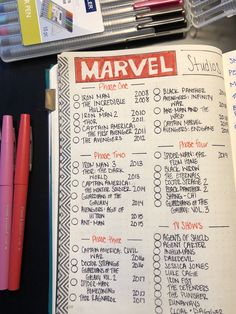 MARVEL Studios
Phase One
IRON MAN 2008
THE INCREDIBLE HULK 2008
IRON MAN 2 2010
THOR 2011
CAPTAIN AMERICA: THE FIRST AVENGER 2011
THE AVENGERS 2012
Phase Two
IRON MAN 3 2013
THOR: THE DARK WORLD 2013
CAPTAIN AMERICA: THE WINTER SOLDIER 2014
GUARDIANS OF THE GALAXY 2014
AVENGERS: AGE OF ULTRON 2015
ANT-MAN 2015
Phase Three
CAPTAIN AMERICA: CIVIL WAR 2016
DOCTOR STRANGE 2016
GUARDIANS OF THE GALAXY VOL. 2 2017
SPIDER-MAN: HOMECOMING 2017
THOR RAGNAROK 2017
BLACK PANTHER
AVENGERS: INFINITY WAR
ANT-MAN AND THE WASP
CAPTAIN MARVEL
AVENGERS: ENDGAME
Phase Four
SPIDER-MAN: FAR FROM HOME
BLACK WIDOW
THE ETERNALS
DOCTOR STRANGE 2
BLACK PANTHER 2
SHANG-CHI
GUARDIANS OF THE GALAXY VOL. 3
TV SHOWS
AGENTS OF SHIELD
AGENT CARTER
INHUMANS
DAREDEVIL
JESSICA JONES
LUKE CAGE
IRON FIST
THE DEFENDERS
THE PUNISHER
RUNAWAYS
CLOAK + DAGGER